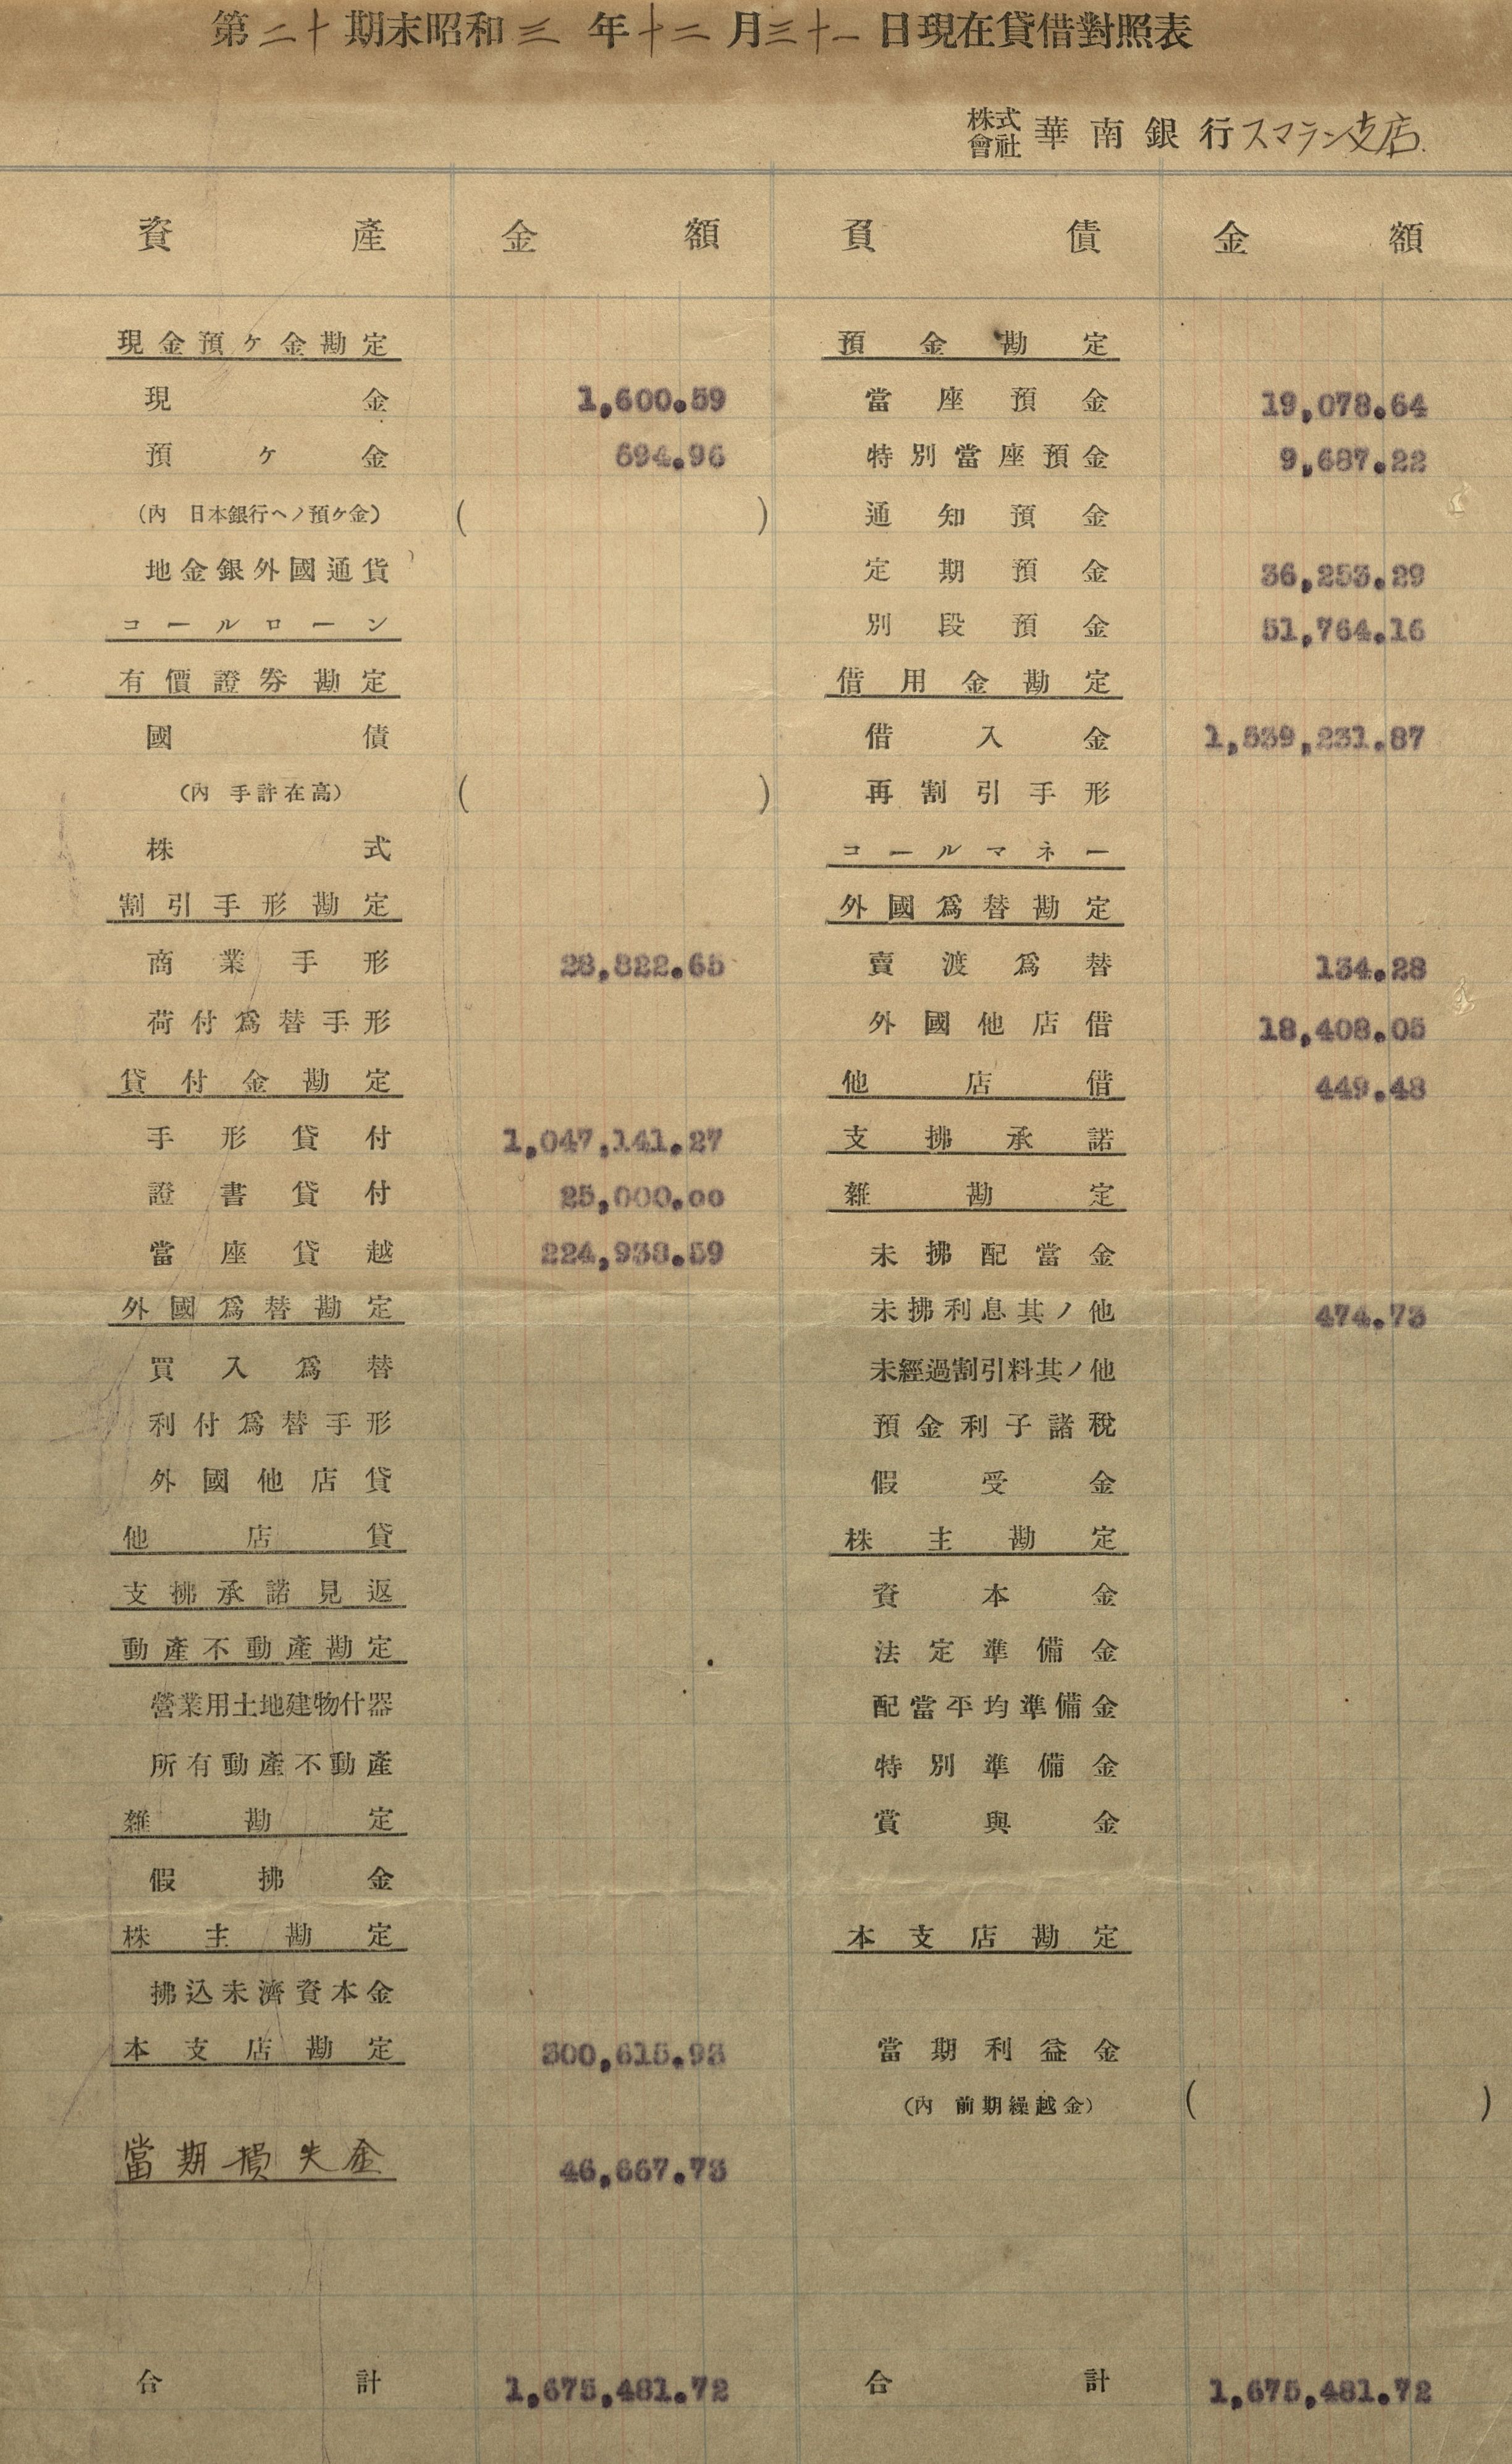 第二十期末昭和三年十二月三十一日現在貸借對照表
株式會社 華南銀行スマラン支店.
資產 金額 負債 金額
現金預ケ金勘定 預金勘定
現金 1,600.59 當座預金 19,078.64
預ケ金 694.96 特別當座預金 9,687.22
(內 日本銀行ヘノ預ケ金) ( ) 通知預金
地金銀外國通貨 定期預金 36,253.29
コールローン 別段預金 51,764.16
有價證券勘定 借用金勘定
國債 借入金 1,539,231.87
(內 手許在高) ( ) 再割引手形
株式 コールマネー
割引手形勘定 外國爲替勘定
商業手形 28,822.65 賣渡爲替 134.28
荷付爲替手形 外國他店借 18,408.05
貸付金勘定 他店借 449.48
手形貸付 1,047,141.27 支拂承諾
證書貸付 25,000.00 雜勘定
當座貸越 224,938.59 未拂配當金
外國爲替勘定 未拂利息其ノ他 474.73
買入爲替 未經過割引料其ノ他
利付爲替手形 預金利子諸稅
外國他店貸 假受金
他店貸 株主勘定
支拂承諾見返 資本金
動產不動產勘定 法定準備金
營業用土地建物什器 配當平均準備金
所有動產不動產 特別準備金
雜勘定 賞與金
假拂金
株主勘定 本支店勘定
拂込未濟資本金
本支店勘定 300,615.93 當期利益金
(內 前期繰越金) ( )
當期損失金 46,667.73
合計 1,675,481.72 合計 1,675,481.72